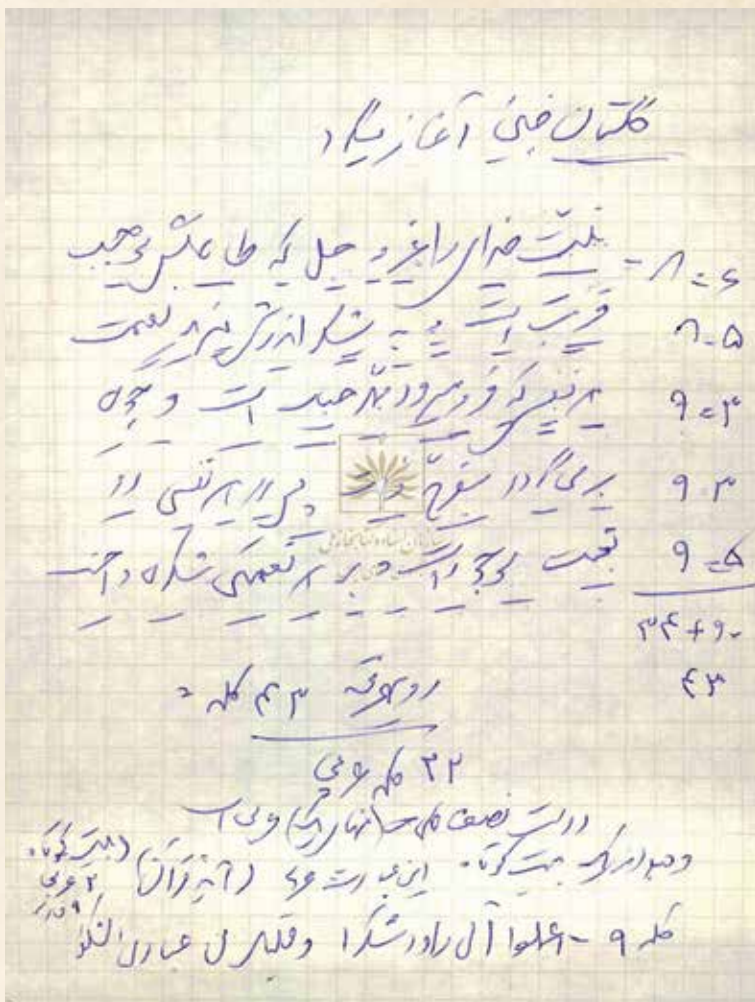 گلستان چنین آغاز میگردد
۸ = ۶ - منت خدای را عز و جل که طاعتش موجب
۸ - ۵ قربت است و به شکر اندرش مزید نعمت
۹ = ۴ هر نفسی که فرو میرود ممد حیات است و چون
۹ - ۳ برمی‌آید مفرح ذات پس در هر نفسی دو
۹ = ۵ نعمت موجود است و بر هر نعمتی شکری واجب
۳۴ + ۹
۴۳
رویهمرفته ۴۳ کلمه =
۲۲ کلمه عربی
درست نصف کلمات عربی است
و جمله کوتاه این عبارت عربی (آیه قرآن)
کلمه ۹ - اعملوا آل داود شکرا و قلیل من عبادی الشکور